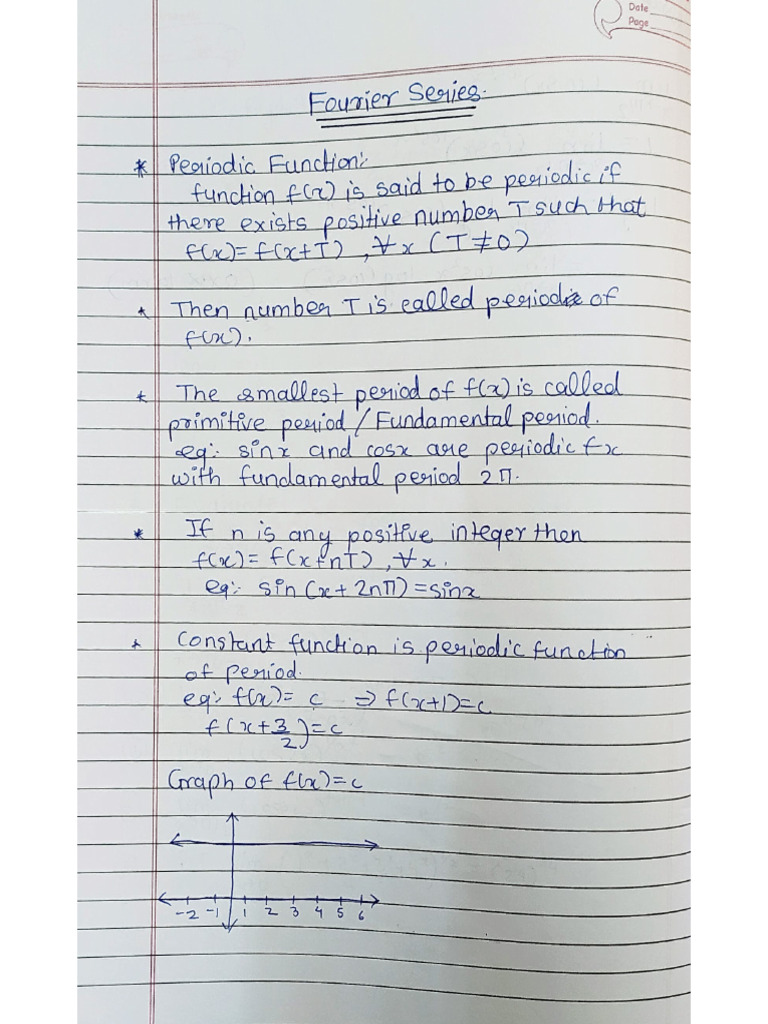 Date
Page
Fourier Series.
* Periodic Function:
function f(x) is said to be periodic if
there exists positive number T such that
f(x)= f(x+T) , ∀x (T≠0)
* Then number T is called period of
f(x).
* The smallest period of f(x) is called
primitive period / Fundamental period.
eg:- sinx and cosx are periodic fx
with fundamental period 2π.
* If n is any positive integer then
f(x)= f(x+nT) , ∀x.
eg:- sin(x+2nπ)=sinx
* Constant function is periodic function
of period.
eg:- f(x)= c ⇒ f(x+1)=c
f(x+3/2)=c
Graph of f(x)=c
-2 -1 1 2 3 4 5 6